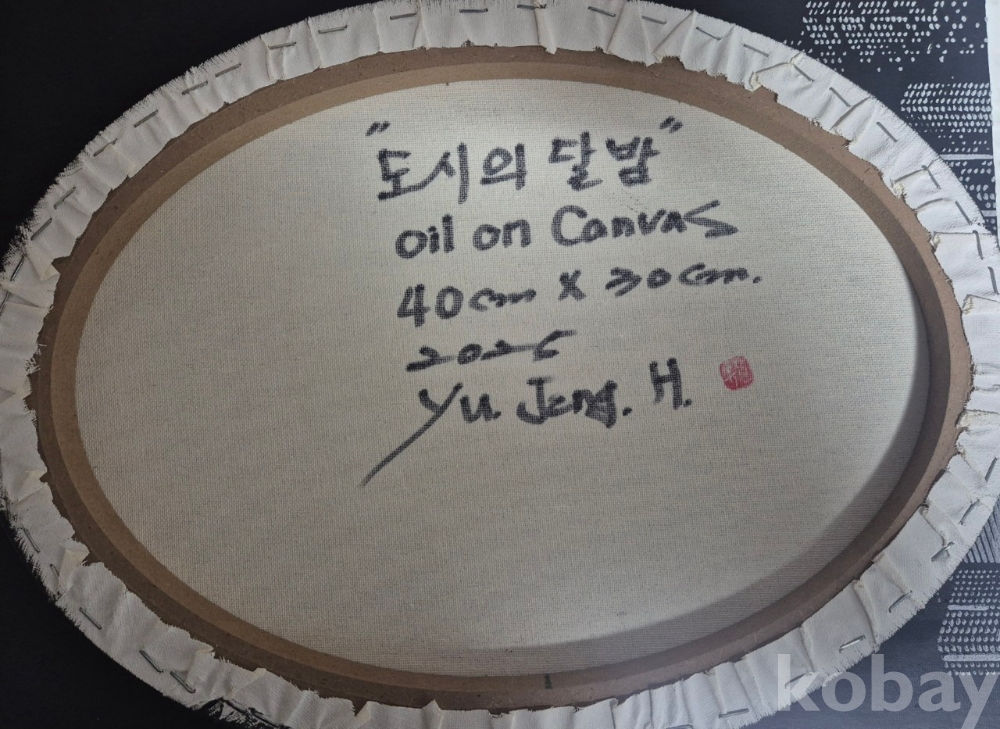 "도시의 달밤"
oil on Canvas
40cm x 30cm.
2025
Yu. Jeng. H.
kobay